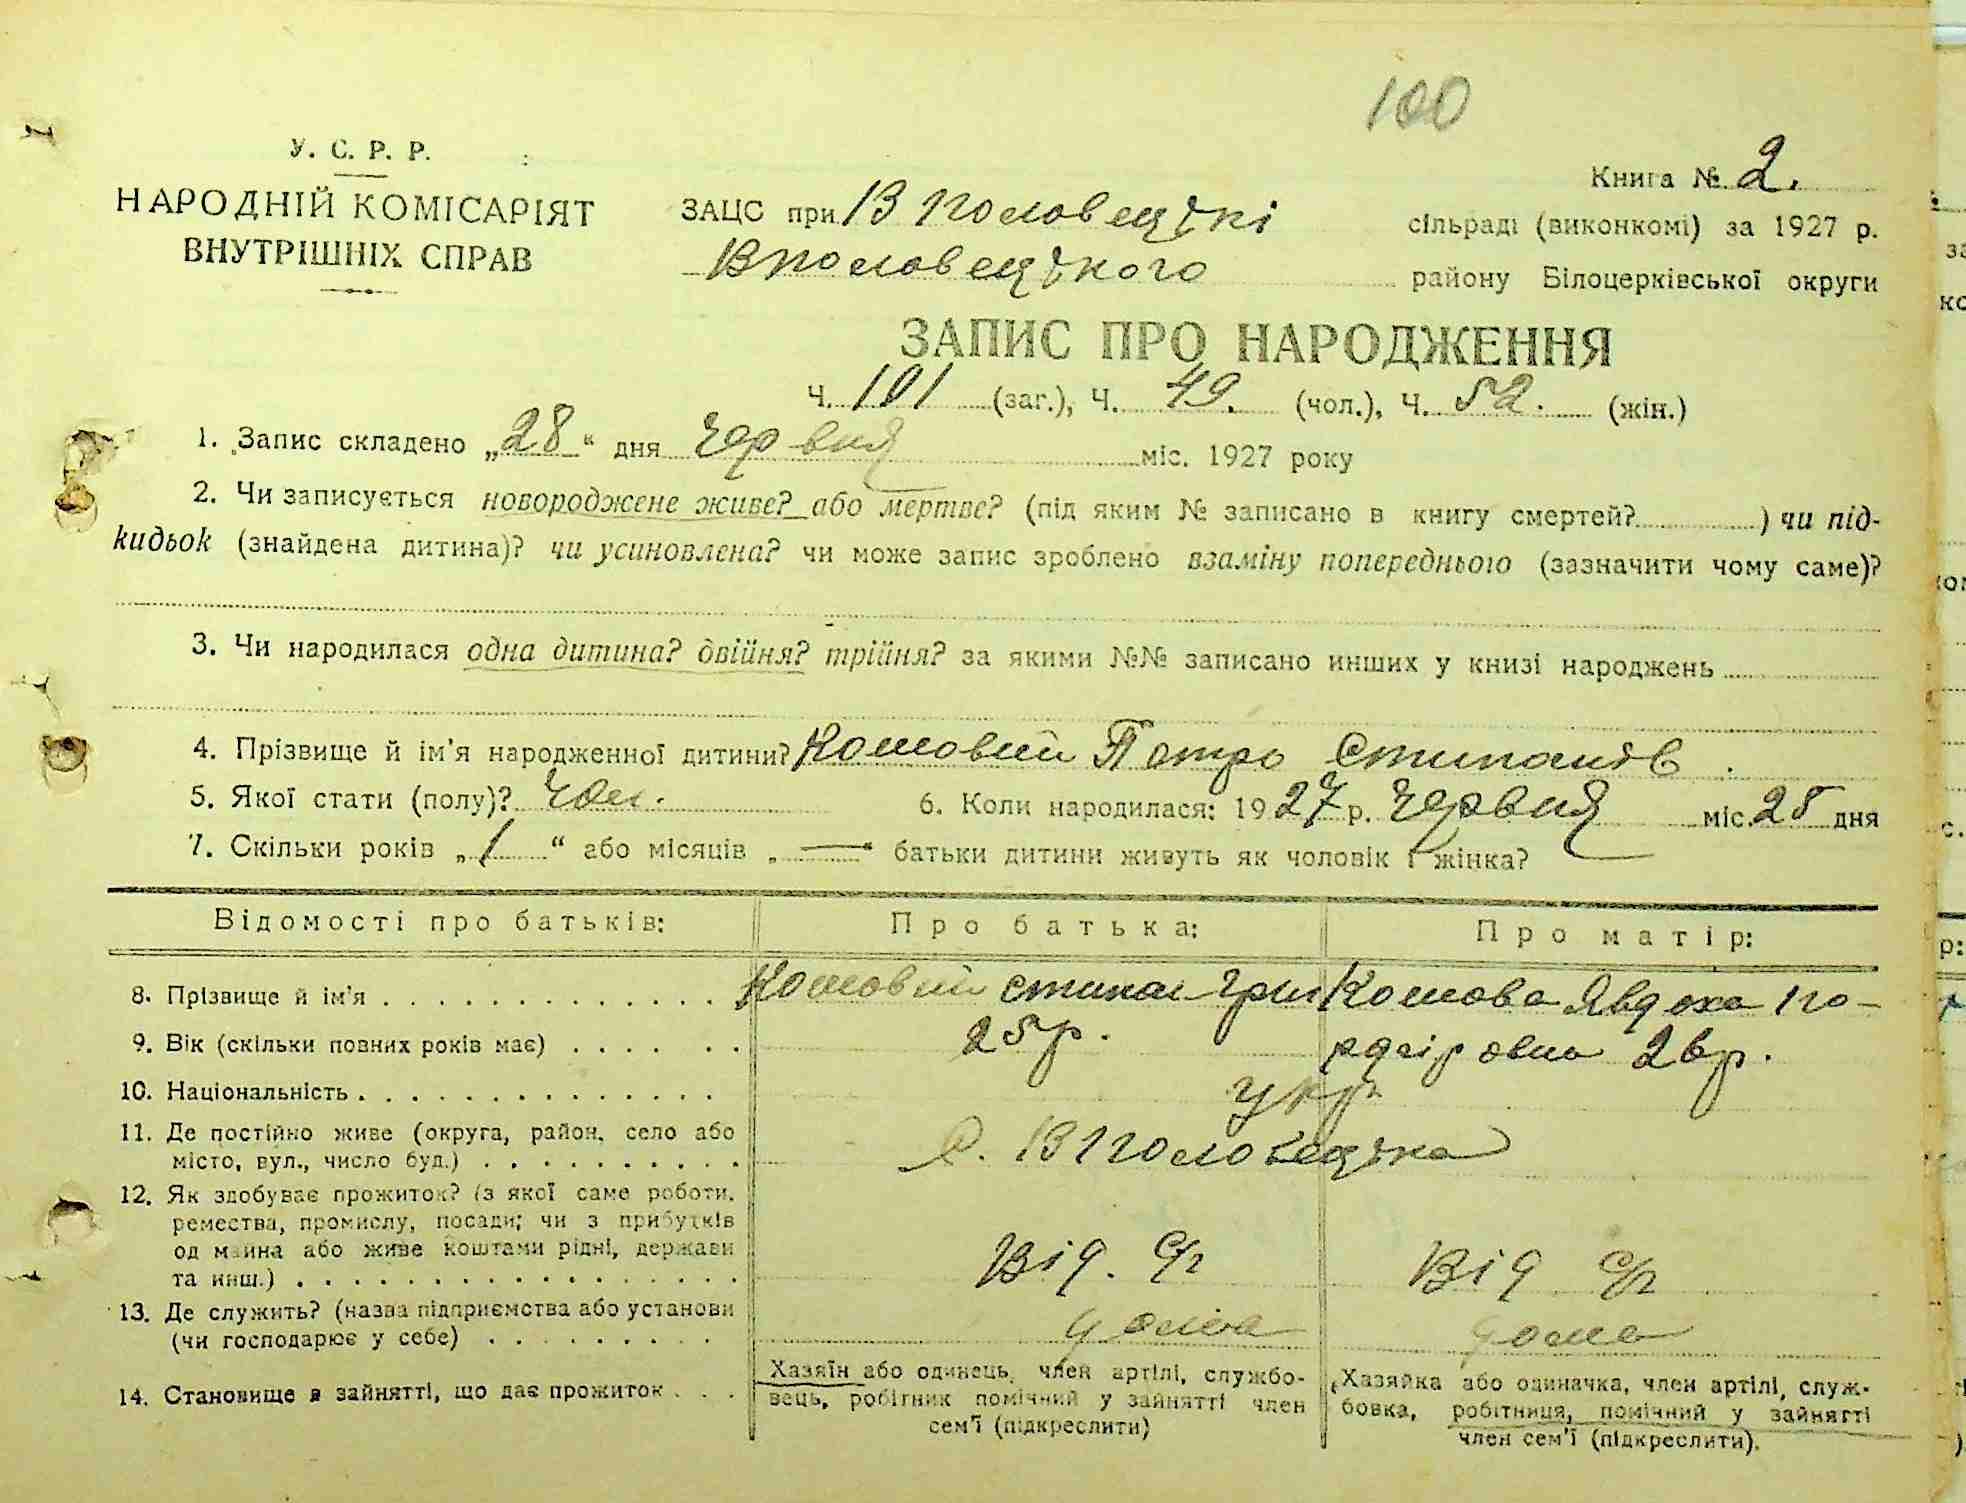 100
У. С. Р. Р.
НАРОДНІЙ КОМІСАРІЯТ
ВНУТРІШНІХ СПРАВ
Книга № 2.
ЗАЦС при В Половецькі сільраді (виконкомі) за 1927 р.
В половецького району Білоцерківської округи
ЗАПИС ПРО НАРОДЖЕННЯ
Ч. 101 (заг.), Ч. 49. (чол.), Ч. 52. (жін.)
1. Запис складено „28“ дня червня міс. 1927 року
2. Чи записується новороджене живе? або мертве? (під яким № записано в книгу смертей? ) чи під-
кидьок (знайдена дитина)? чи усиновлена? чи може запис зроблено взаміну попереднього (зазначити чому саме)?
3. Чи народилася одна дитина? двійня? трійня? за якими №№ записано инших у книзі народжень
4. Прізвище й ім'я народженної дитини? Кошовий Петро Стипанів.
5. Якої стати (полу)? Чол. 6. Коли народилася: 1927 р. червня міс. 28 дня
7. Скільки років „1“ або місяців „—“ батьки дитини живуть як чоловік і жінка?
Відомості про батьків: Про батька: Про матір:
8. Прізвище й ім'я Кошовий Стипан Гри Кошова Явдоха По-
9. Вік (скільки повних років має) 25р. 26р.
10. Національність укр
11. Де постійно живе (округа, район, село або
місто, вул., число буд.) с. В Половецька
12. Як здобуває прожиток? (з якої саме роботи,
ремества, промислу, посади; чи з прибутків
од майна або живе коштами рідні, держави
та инш.) Від. С/г Від С/г
13. Де служить? (назва підприємства або установи
(чи господарює у себе) дома дома
14. Становище в зайнятті, що дає прожиток
Хазяїн або одинець, член артілі, службо-
вець, робітник помічний у зайнятті член
сем'ї (підкреслити)
Хазяйка або одиначка, член артілі, служ-
бовка, робітниця, помічний у зайнятті
член сем'ї (підкреслити).